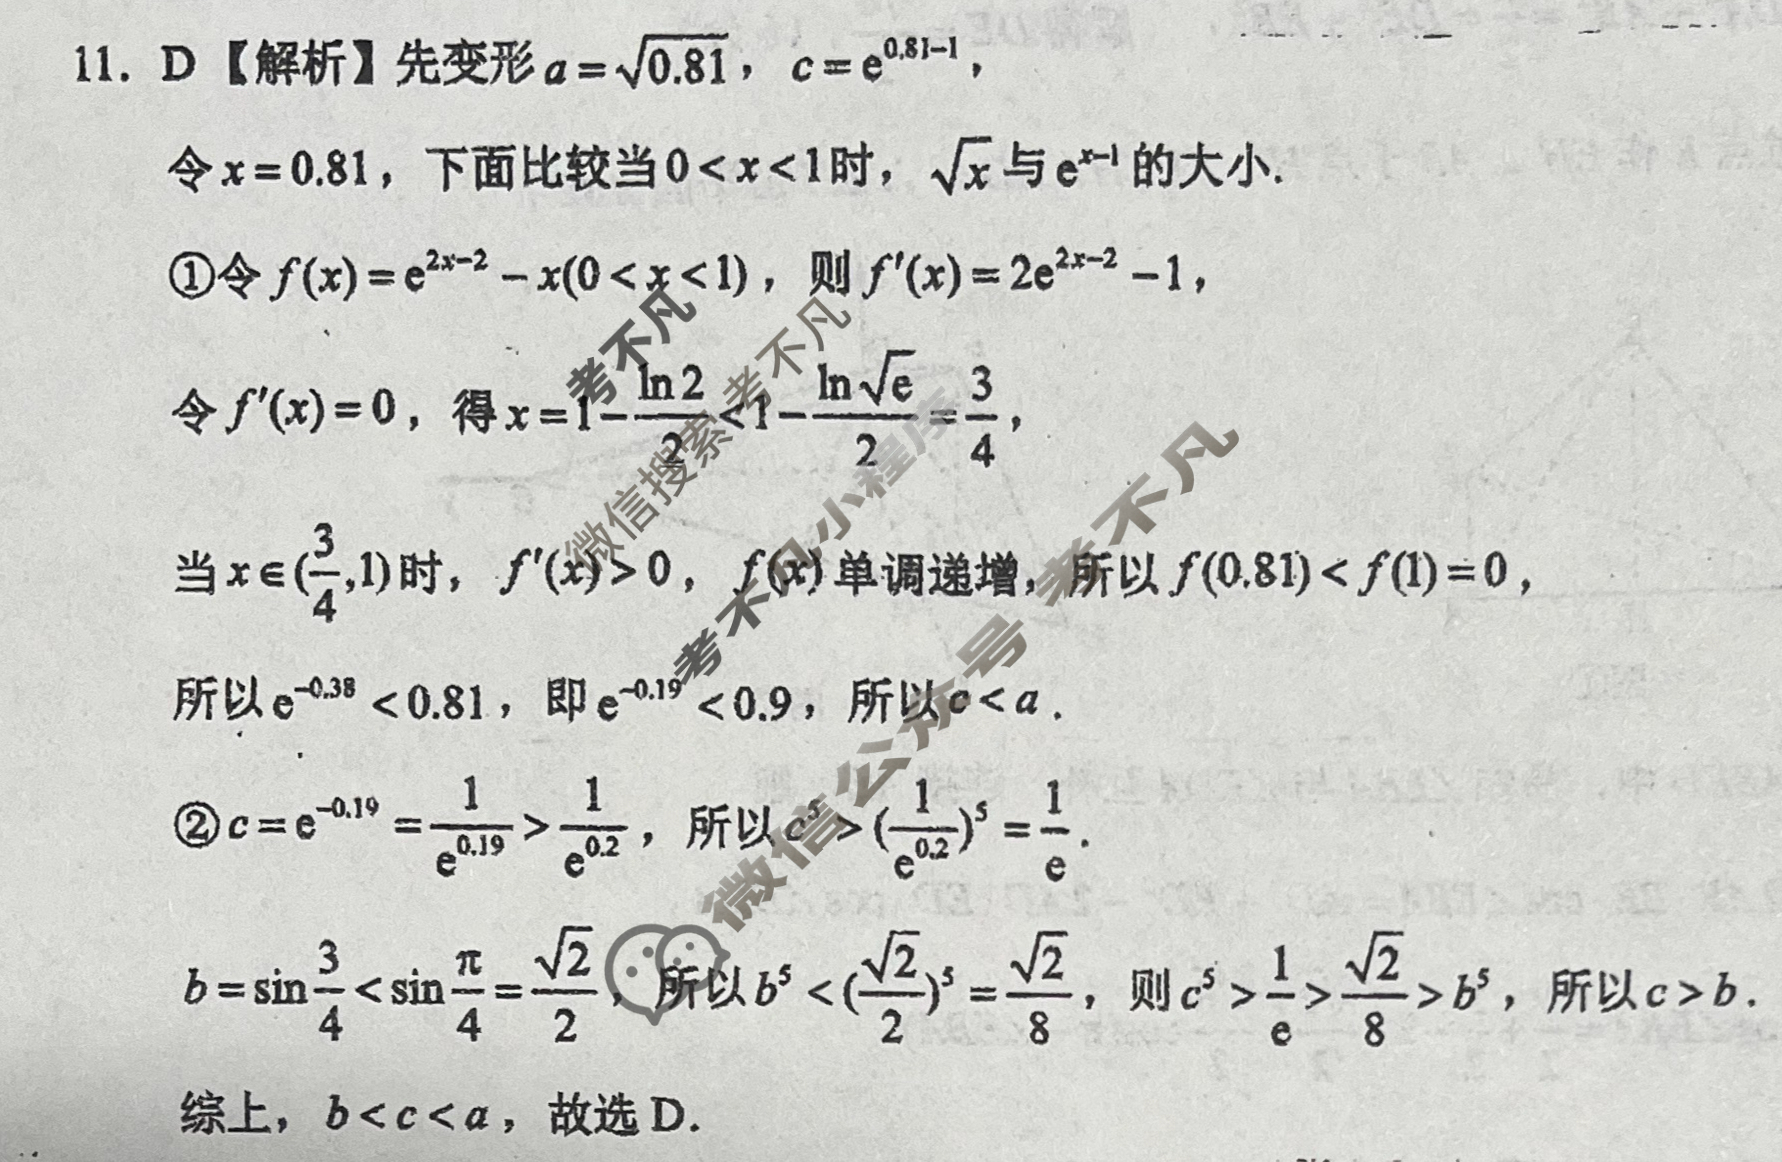 11. D 【解析】先变形 a = √0.81, c = e^{0.81-1},
令 x = 0.81, 下面比较当 0 < x < 1 时, √x 与 e^{x-1} 的大小.
①令 f(x) = e^{2x-2} - x(0 < x < 1), 则 f'(x) = 2e^{2x-2} - 1,
令 f'(x) = 0, 得 x = 1 - \frac{ln 2}{2} < 1 - \frac{ln √e}{2} = \frac{3}{4},
当 x ∈ (\frac{3}{4}, 1) 时, f'(x) > 0, f(x) 单调递增, 所以 f(0.81) < f(1) = 0,
所以 e^{-0.38} < 0.81, 即 e^{-0.19} < 0.9, 所以 c < a.
②c = e^{-0.19} = \frac{1}{e^{0.19}} > \frac{1}{e^{0.2}}, 所以 c^5 > (\frac{1}{e^{0.2}})^5 = \frac{1}{e}.
b = sin \frac{3}{4} < sin \frac{π}{4} = \frac{√2}{2}, 所以 b^5 < (\frac{√2}{2})^5 = \frac{√2}{8}, 则 c^5 > \frac{1}{e} > \frac{√2}{8} > b^5, 所以 c > b.
综上, b < c < a, 故选 D.
考不凡
微信搜索 考不凡
考不凡小程序
微信公众号 考不凡